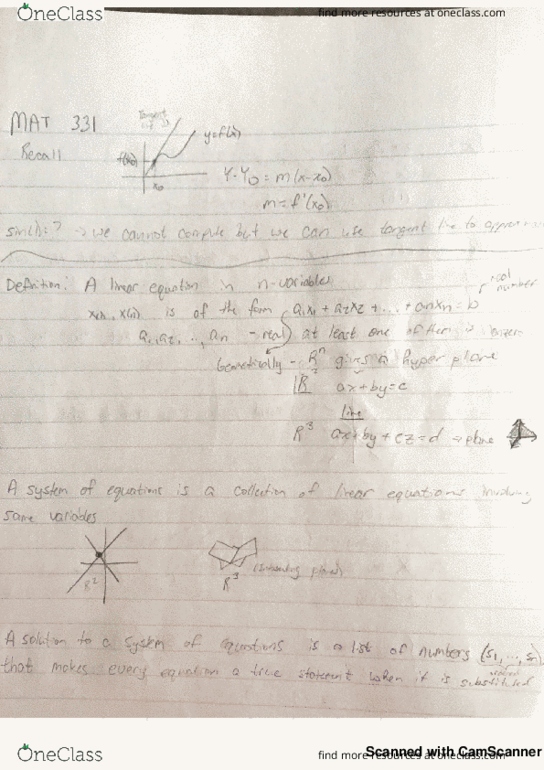 OneClass
find more resources at oneclass.com
MAT 331
Recall
Tangent
y=f(x)
f(x₀)
x₀
Y-Y₀ = m(x-x₀)
m = f'(x₀)
sin(1)=? → we cannot compute but we can use tangent line to
Definition: A linear equation in n-variables
real number
is of the form a₁x₁ + a₂x₂ + ... + anxn = b
a₁, a₂, ..., an - real) at least one of them is
Geometrically - Rⁿ gives a hyper plane
R² ax+by=c
line
R³ ax+by+cz=d → plane
A system of equations is a collection of linear equations involving
same variables
R²
R³
A solution to a system of equations is a list of numbers (s₁,...,sn)
that makes every equation a true statement when it is substituted
OneClass
find more resources at oneclass.com
Scanned with CamScanner